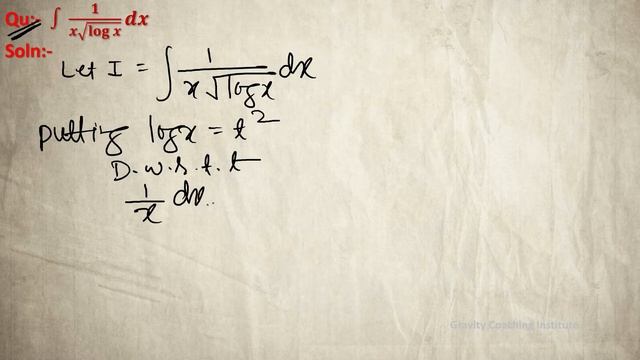 Qu:- ∫ 1/(x√log x) dx
Soln:-
Let I = ∫ 1/(x√logx) dx
putting logx = t²
D.w.r.t. t
1/x dx
Gravity Coaching Institute